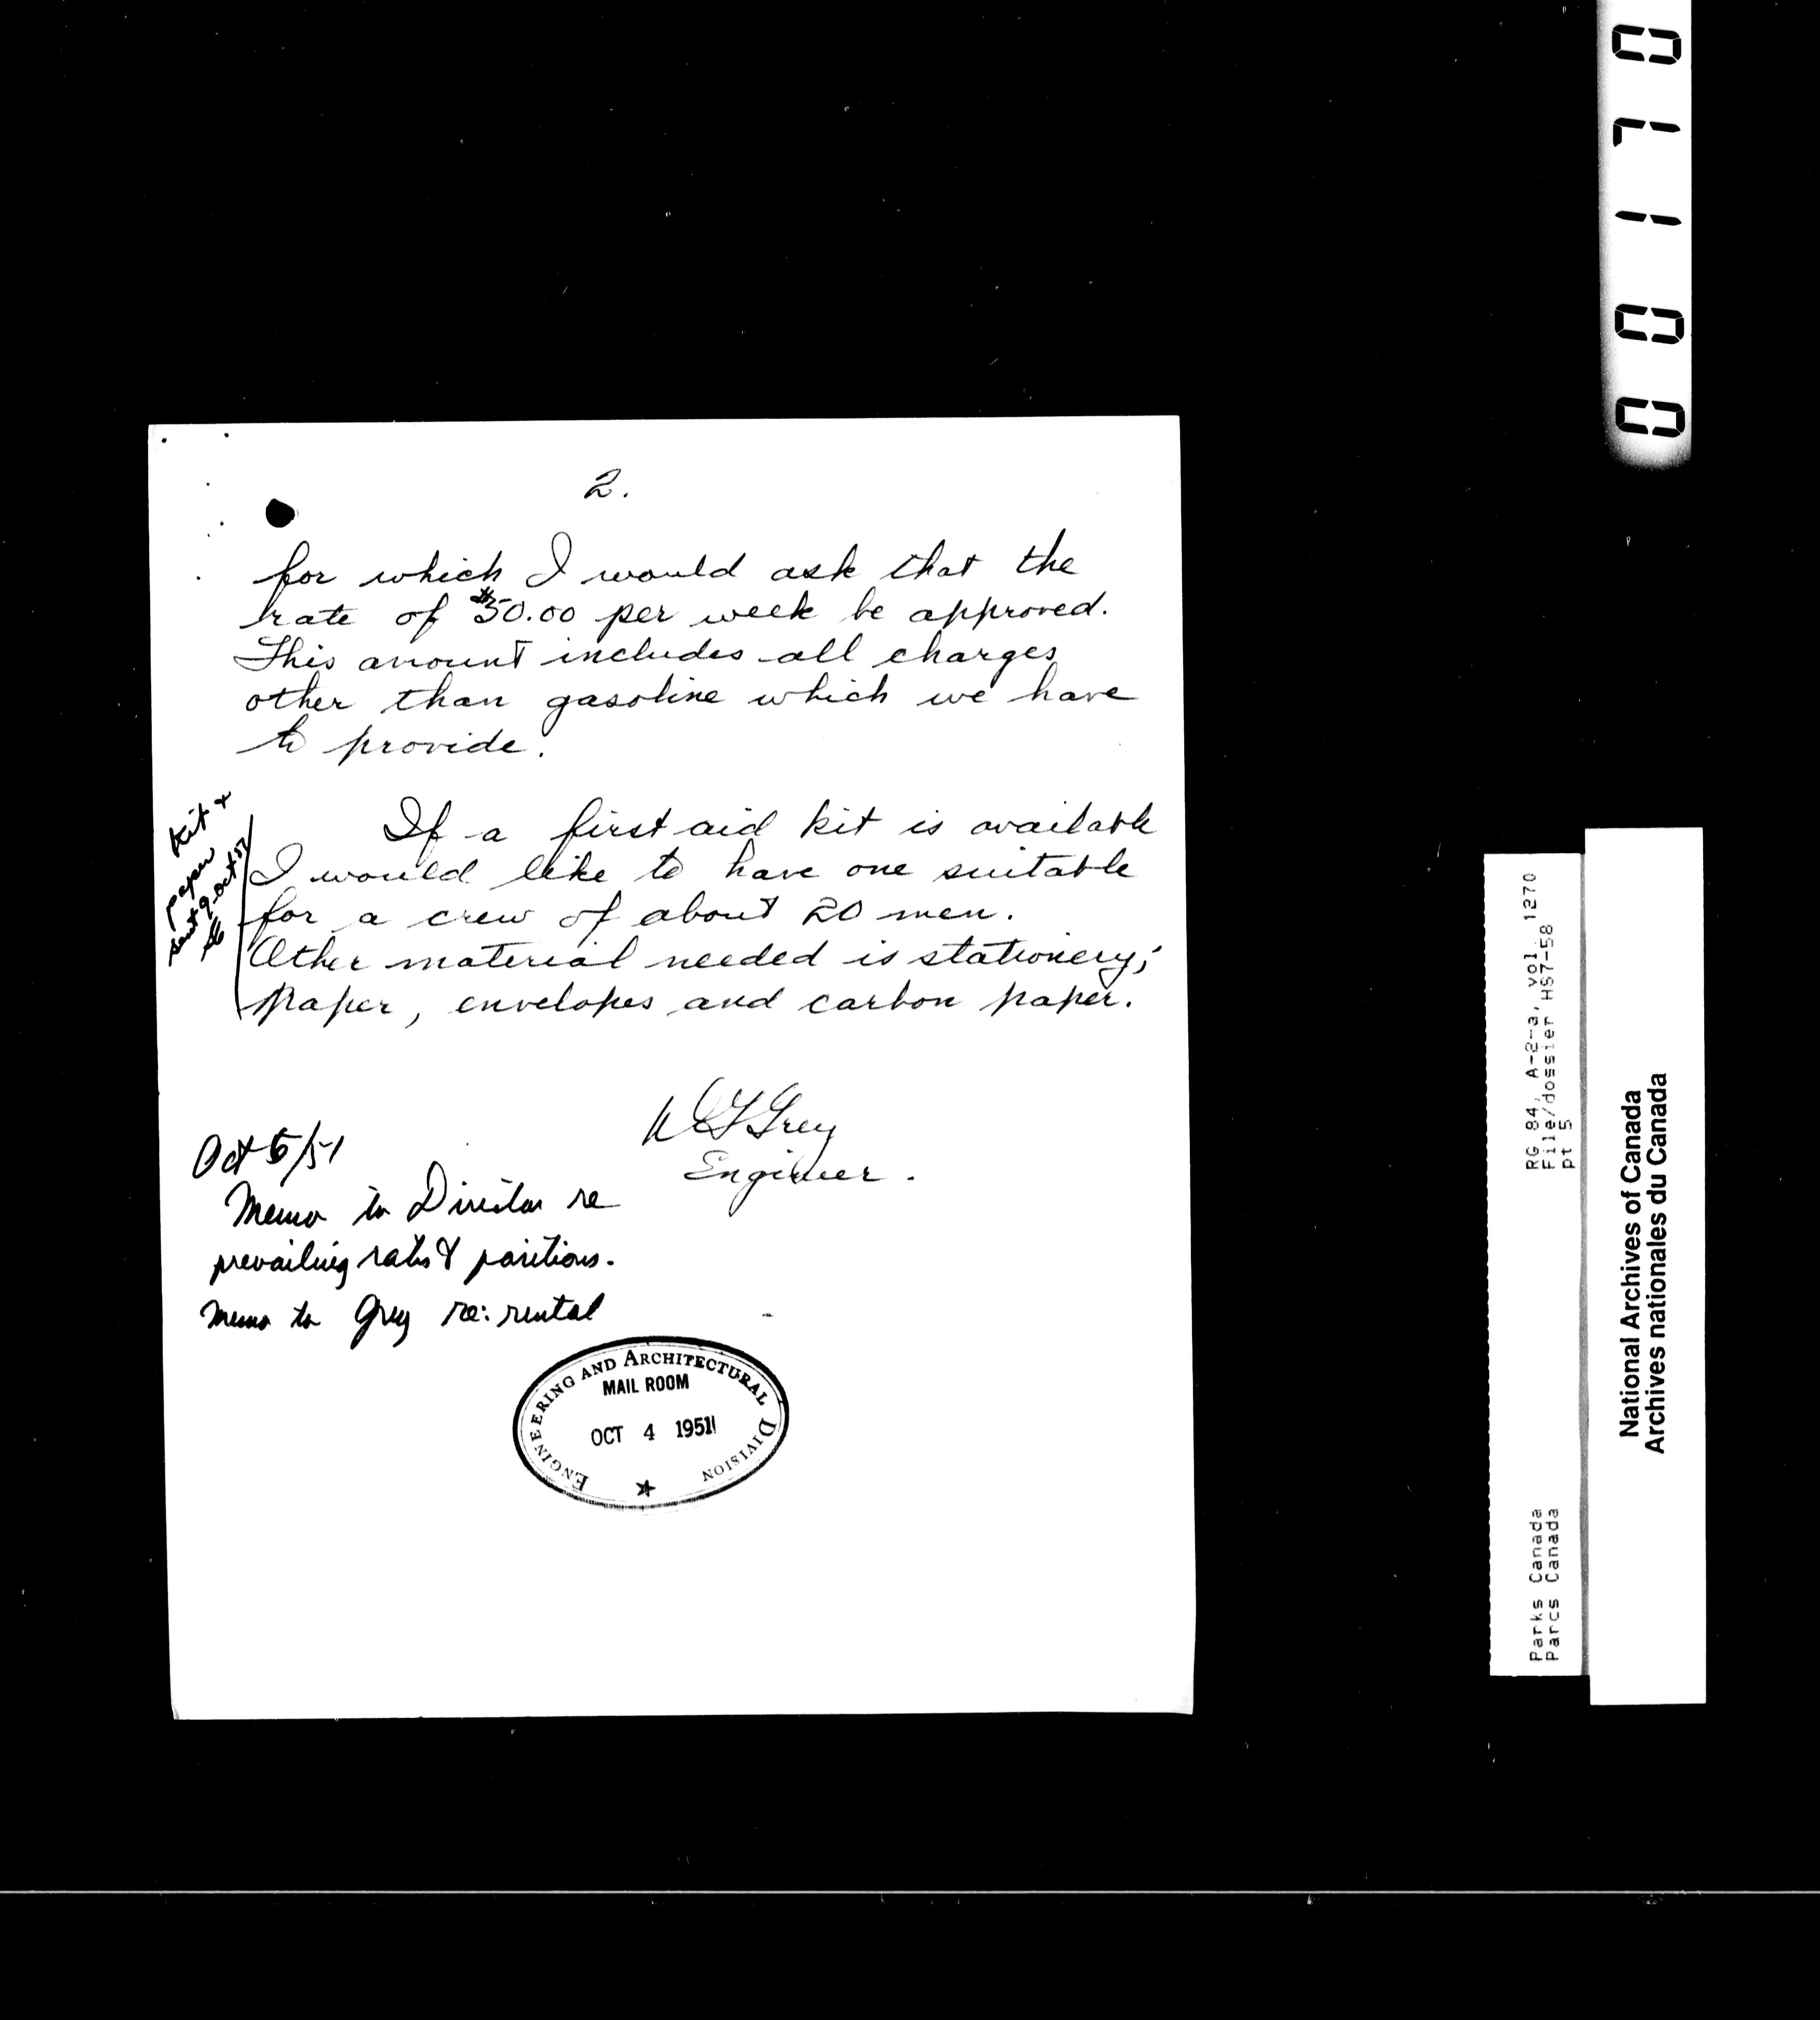 2.
for which I would ask that the
rate of $50.00 per week be approved.
This amount includes all charges
other than gasoline which we have
to provide.
Kit &
paper
sent 9 Oct 51
If a first aid kit is available
I would like to have one suitable
for a crew of about 20 men.
Other material needed is stationery;
paper, envelopes and carbon paper.
Grey
Engineer.
Oct 5/51
Memo to Director re
prevailing rates & positions.
Memo to Grey re: rental
ENGINEERING AND ARCHITECTURAL DIVISION
MAIL ROOM
OCT 4 1951
00170
RG 84, A-2-a, vol. 1270
File/dossier HS7-58
pt 5
Parks Canada
Parcs Canada
National Archives of Canada
Archives nationales du Canada